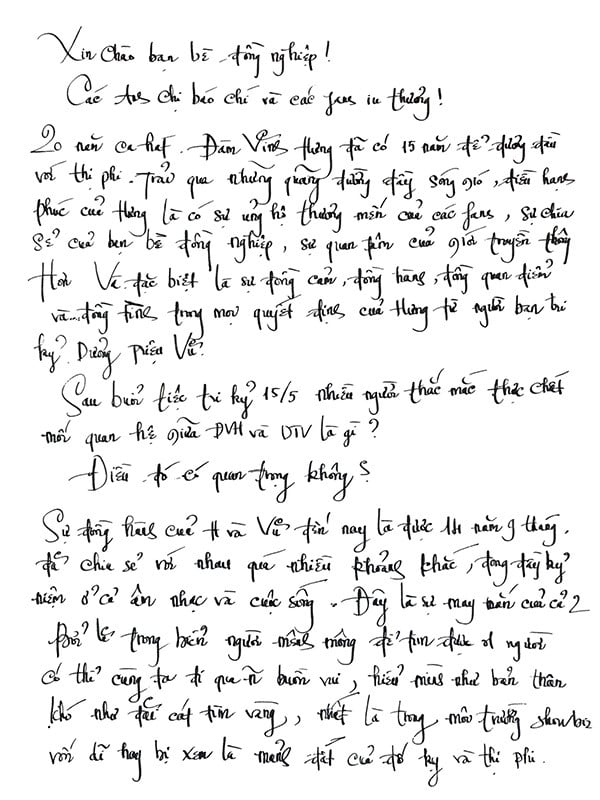 Xin chào bạn bè đồng nghiệp!
Các Anh chị báo chí và các fans iu thương!
20 năm ca hát. Đàm Vĩnh Hưng đã có 15 năm để đương đầu
với thị phi. Trải qua những quãng đường đầy sóng gió, điều hạnh
phúc của Hưng là có sự ủng hộ thương mến của các fans, sự chia
sẻ của bạn bè đồng nghiệp, sự quan tâm của giới truyền thông
Hơn Và đặc biệt là sự đồng cảm, đồng hành, đồng quan điểm
và... đồng tình trong mọi quyết định của Hưng từ người bạn tri
kỷ Dương Triệu Vũ.
Sau buổi tiệc tri kỷ 15/5 nhiều người thắc mắc thực chất
mối quan hệ giữa ĐVH và DTV là gì?
Điều đó có quan trọng không?
Sự đồng hành của H và Vũ đến nay là được 14 năm 9 tháng.
đã chia sẻ với nhau quá nhiều khoảng khắc, đong đầy kỷ
niệm ở cả âm nhạc và cuộc sống. Đây là sự may mắn của cả 2
Bởi lẽ trong biển người mênh mông để tìm được 01 người
có thể cùng ta đi qua buồn vui, hiểu mình như bản thân
khó như đãi cát tìm vàng, nhất là trong môi trường showbiz
vốn dĩ hay bị xem là mảnh đất của đố kỵ và thị phi.